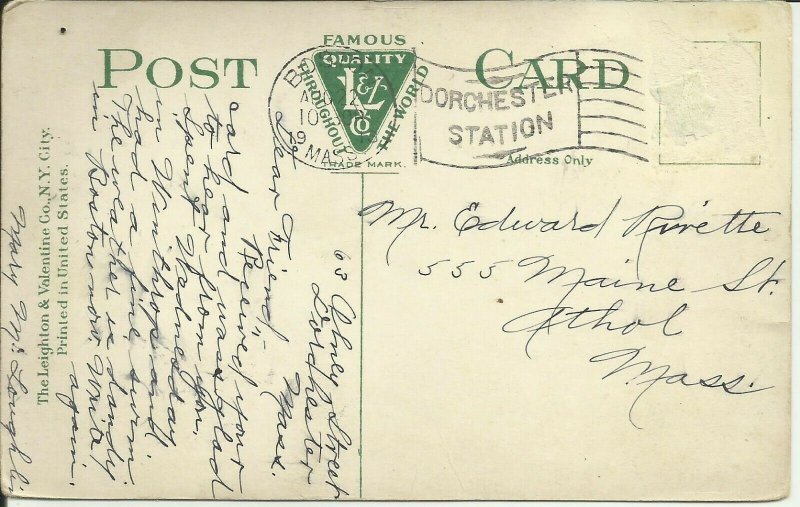 POST CARD
FAMOUS
QUALITY
THROUGHOUT
THE WORLD
L&V
Co
TRADE MARK.
BOSTON
10
MASS
DORCHESTER
STATION
Address Only
Mr. Edward Rivette
555 Maine St.
Athol
Mass.
63 Olney Street
Dorchester
Mass.
Dear Friend,-
Received your
card and was glad
to hear from you.
Spent Wednesday
in Winthrop and
had a fine swim
The weather is dandy
in Boston now. Write
again.
Mary McLoughli
The Leighton & Valentine Co., N.Y. City.
Printed in United States.